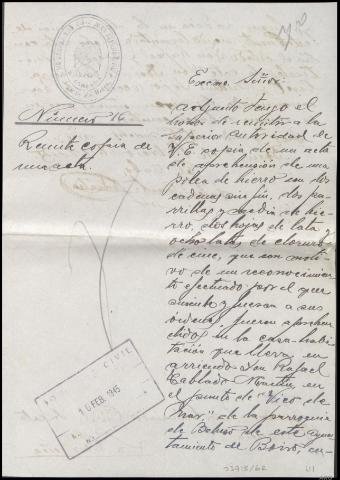 Número 16
Remite copia de
una acta.
Excmo. Señor:
Adjunto tengo el
honor de remitir a la
Superior autoridad de
V.E. copia de un acta
de aprehensión de una
polea de hierro con dos
cadenas sin fin, dos pa-
rrillas y media de hie-
rro, dos hojas de lata y
ocho latas de cloruro
de cinc, que con moti-
vo de un reconocimien-
to efectuado por el que
suscribe y fuerzas a sus
órdenes, fueron aprehen-
didos en la casa-habi-
tación que lleva en
arriendo Don Rafael
Tablado Martín, en
el punto de "Vico de
Mar" de la parroquia
de de este ayun-
tamiento de Boiro, cu-
CIVIL
10 FEB. 1945